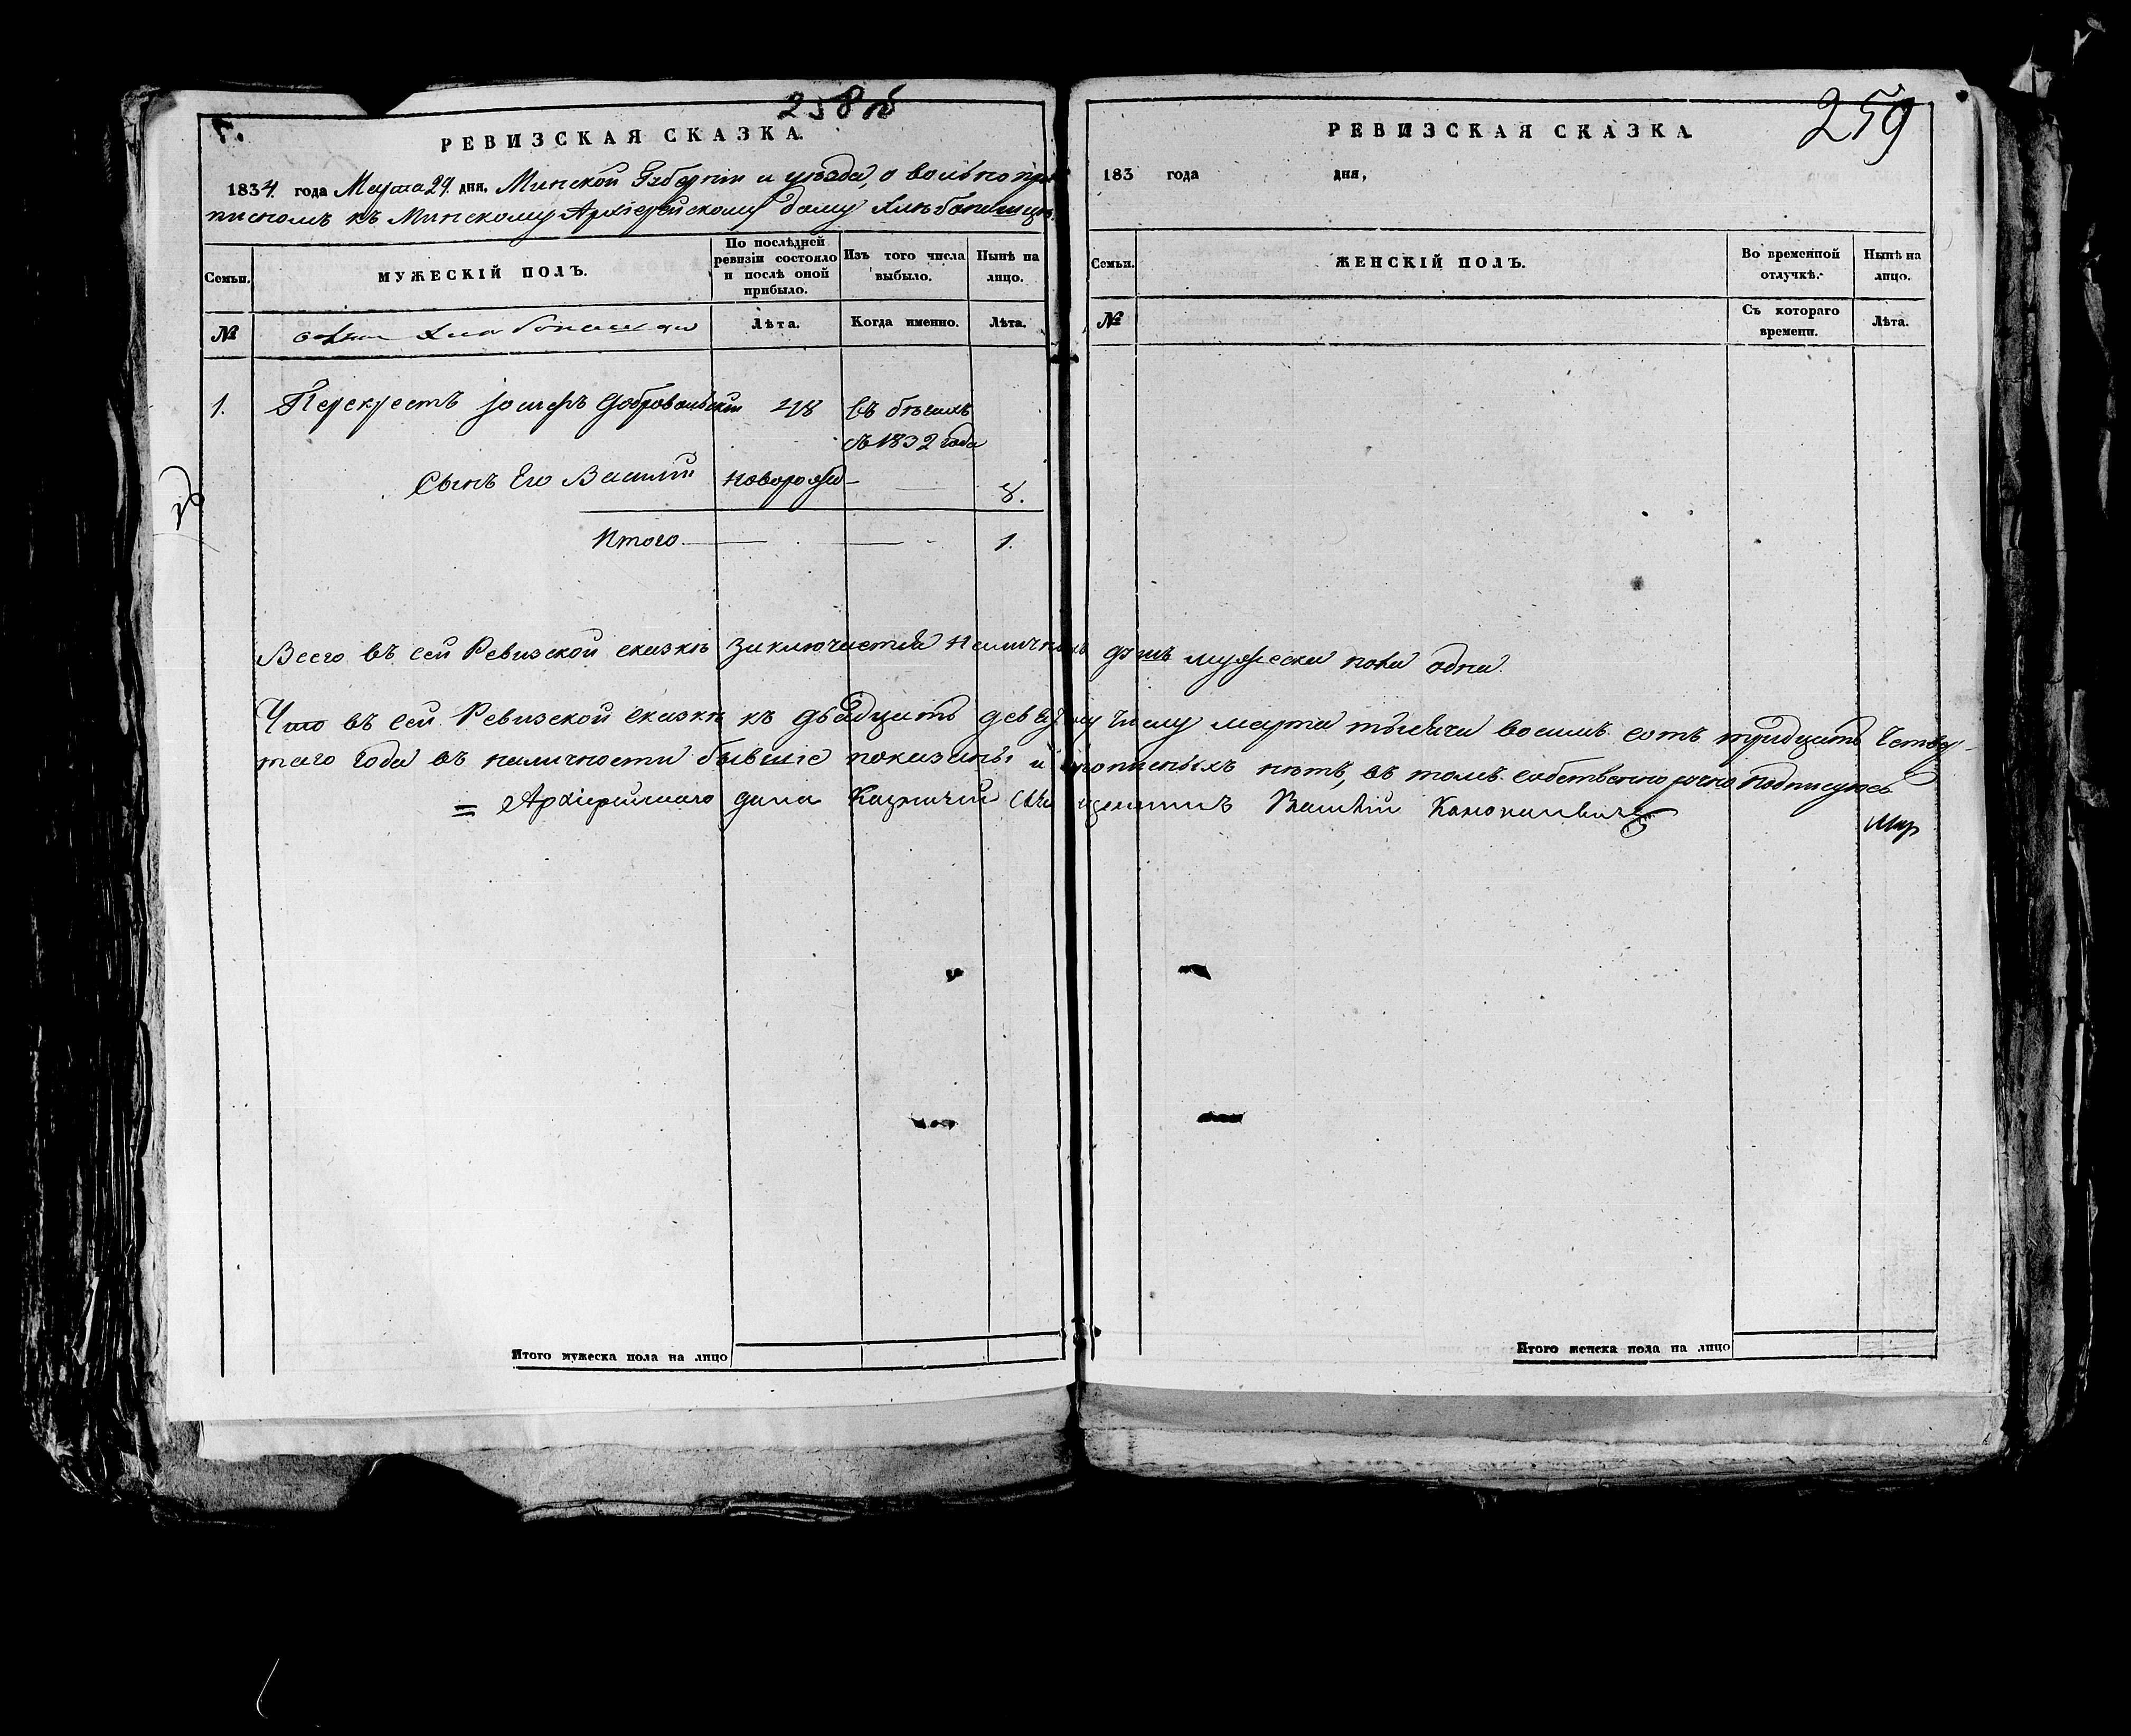 258 б
РЕВИЗСКАЯ СКАЗКА.
1834. года Марта 29. дня, Минской Губерніи и уѣзда, о вольно при
писномъ къ Минскому Архіерейскому дому хлѣбопашцѣ.
Семьи.
МУЖЕСКІЙ ПОЛЪ.
По послѣдней ревизіи состояло и послѣ оной прибыло.
Изъ того числа выбыло.
Нынѣ на лицо.
№
Лѣта.
Когда именно.
Лѣта.
1. Перекрестъ Іосифъ Добровольскій 48 въ бѣгахъ
съ 1832 года
Сынъ Его Василій новорожд— 8.
Итого 1.
259
РЕВИЗСКАЯ СКАЗКА
183 года дня,
Семьи.
ЖЕНСКІЙ ПОЛЪ.
Во временной отлучкѣ.
Нынѣ на лицо.
№
Съ котораго времени.
Лѣта.
Всего въ сей Ревизской сказкѣ заключается наличныхъ душъ мужеска пола одна.
Что въ сей Ревизской сказкѣ къ двадцать девятому числу марта тысяча восемь сотъ тридцать четвер-
таго года въ наличности бывшіе показаны и прописныхъ нѣтъ, въ томъ собственноручно подписуюсь
= Архіерейскаго дома Казначей Священникъ
Итого мужеска пола на лицо
Итого женска пола на лицо